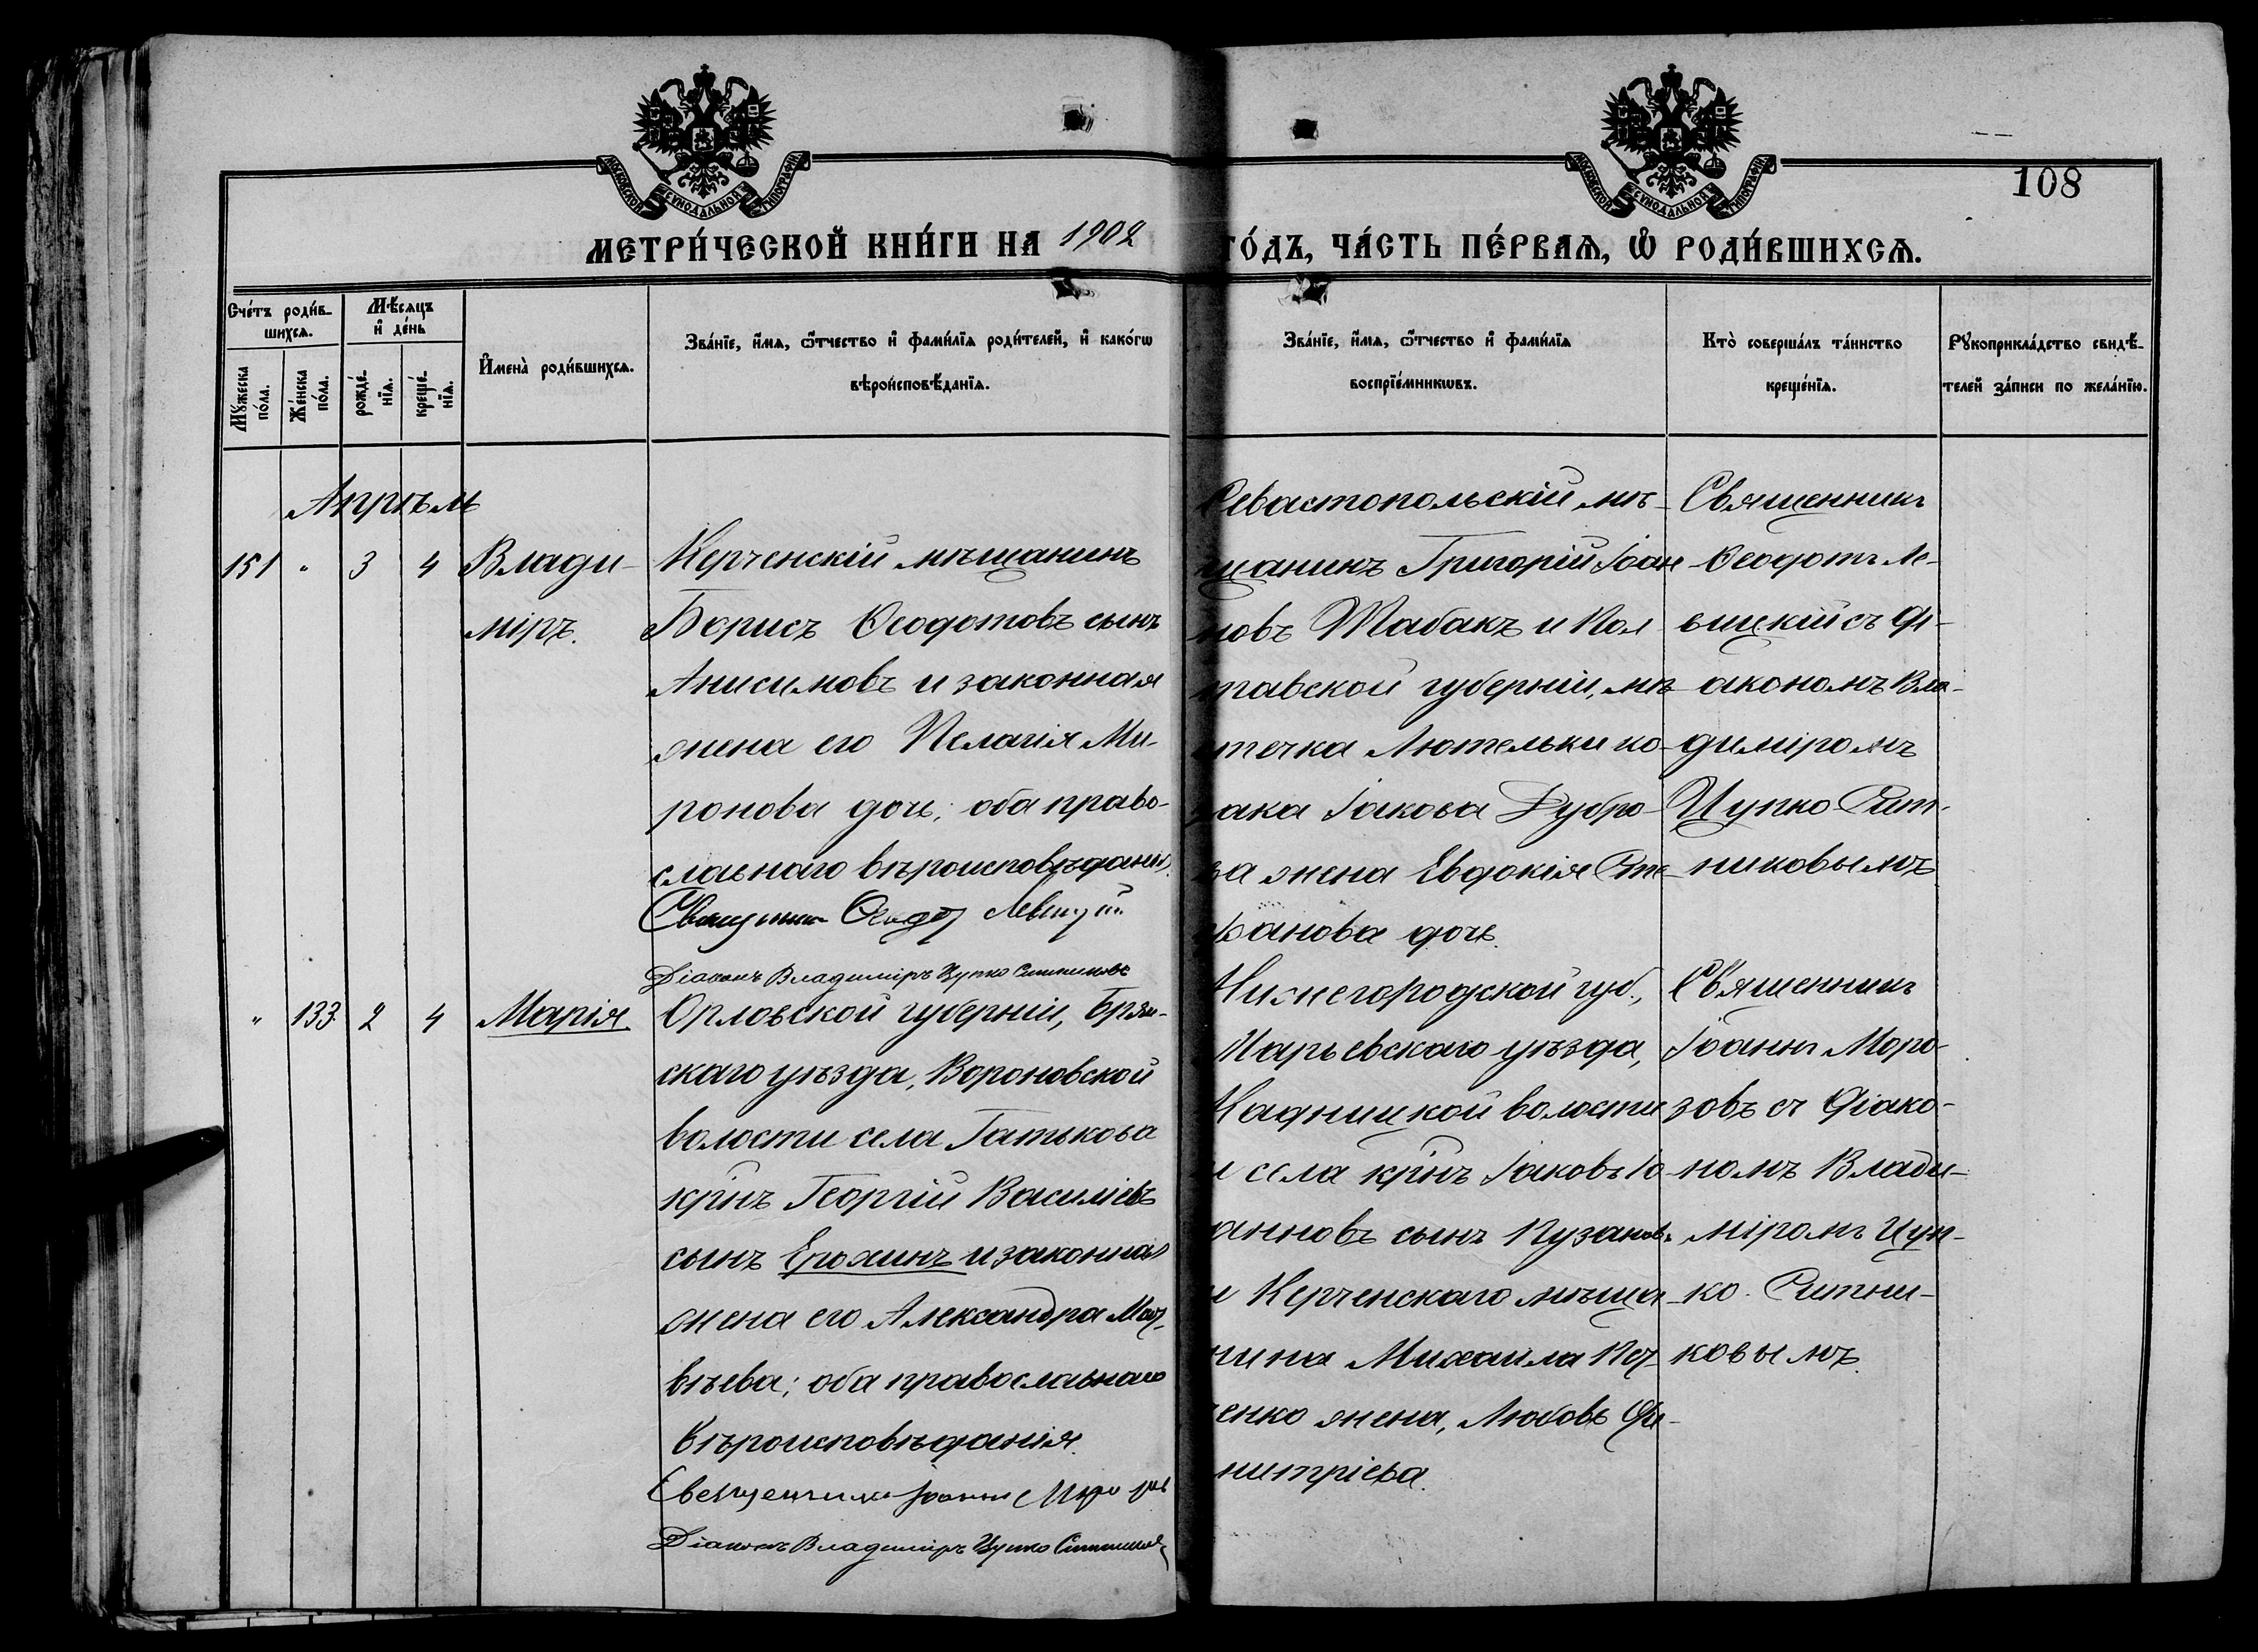 МОСКОВСКОЙ СѴНОДАЛЬНОЙ ТИПОГРАФІИ
МОСКОВСКОЙ СѴНОДАЛЬНОЙ ТИПОГРАФІИ
108
МЕТРИ́ЧЕСКОЙ КНИ́ГИ НА 1902
ГО́ДЪ, ЧА́СТЬ ПЕ́РВАѦ, Ѡ҆ РОДИ́ВШИХСѦ.
Сче́тъ роди́в-
шихсѧ.
Мꙋ́жеска
по́ла.
Же́нска
по́ла.
Мѣ́сяцъ
и҆ де́нь
рожде́-
нїѧ.
креще́-
нїѧ.
И҆мена̀ роди́вшихсѧ.
Зва́нїе, и҆́мѧ, ѻ҆́тчество и҆ фами́лїѧ роди́телей, и҆ како́гѡ
вѣроисповѣ́данїѧ.
Зва́нїе, и҆́мѧ, ѻ҆́тчество и҆ фами́лїѧ
воспрїе́мникѡвъ.
Кто̀ соверша́лъ та́инство
креще́нїѧ.
Рꙋкоприкла́дство свидѣ́-
телей за́писи по жела́нїю.
Апрѣль
151 " 3 4
Влади-
міръ.
Керченскій мѣщанинъ
Борисъ Ѳеодотовъ сынъ
Анисимовъ и законная
жена его Пелагія Ми-
ронова дочь; оба право-
славнаго вѣроисповѣданія.
Священникъ Ѳеодотъ Левицкій
Діаконъ Владиміръ Цупко Ситниковъ
Севастопольскій мѣ-
щанинъ Григорій Іоан
новъ Табакъ и Пол
тавской губерніи, мѣ
стечка Лютельки ко-
зака Іакова Дубро-
ва жена Евдокія Сте
фанова дочь.
Священникъ
Ѳеодотъ Ле-
вицкій съ ді-
акономъ Вла-
диміромъ
Цупко-Сит-
никовымъ
" 133. 2 4
Марія.
Орловской губерніи, Брян-
скаго уѣзда, Вороновской
волости села Гатькова
крнъ Георгій Василіевъ
сынъ Ерохинъ и законная
жена его Александра Мат-
вѣева; оба православнаго
вѣроисповѣданія.
Священникъ Іоаннъ Морозовъ
Діаконъ Владиміръ Цупко Ситниковъ
Нижегородской губ.,
Марьевскаго уѣзда,
Кадницкой волости
и села крнъ Іаковъ Іо
анновъ сынъ Пузановъ
и Керченскаго мѣща
нина Михаила Пет
ренко жена, Любовь Ди-
митріева.
Священникъ
Іоаннъ Моро-
зовъ съ діако-
номъ Влади-
міромъ Цуп-
ко-Ситни-
ковымъ.